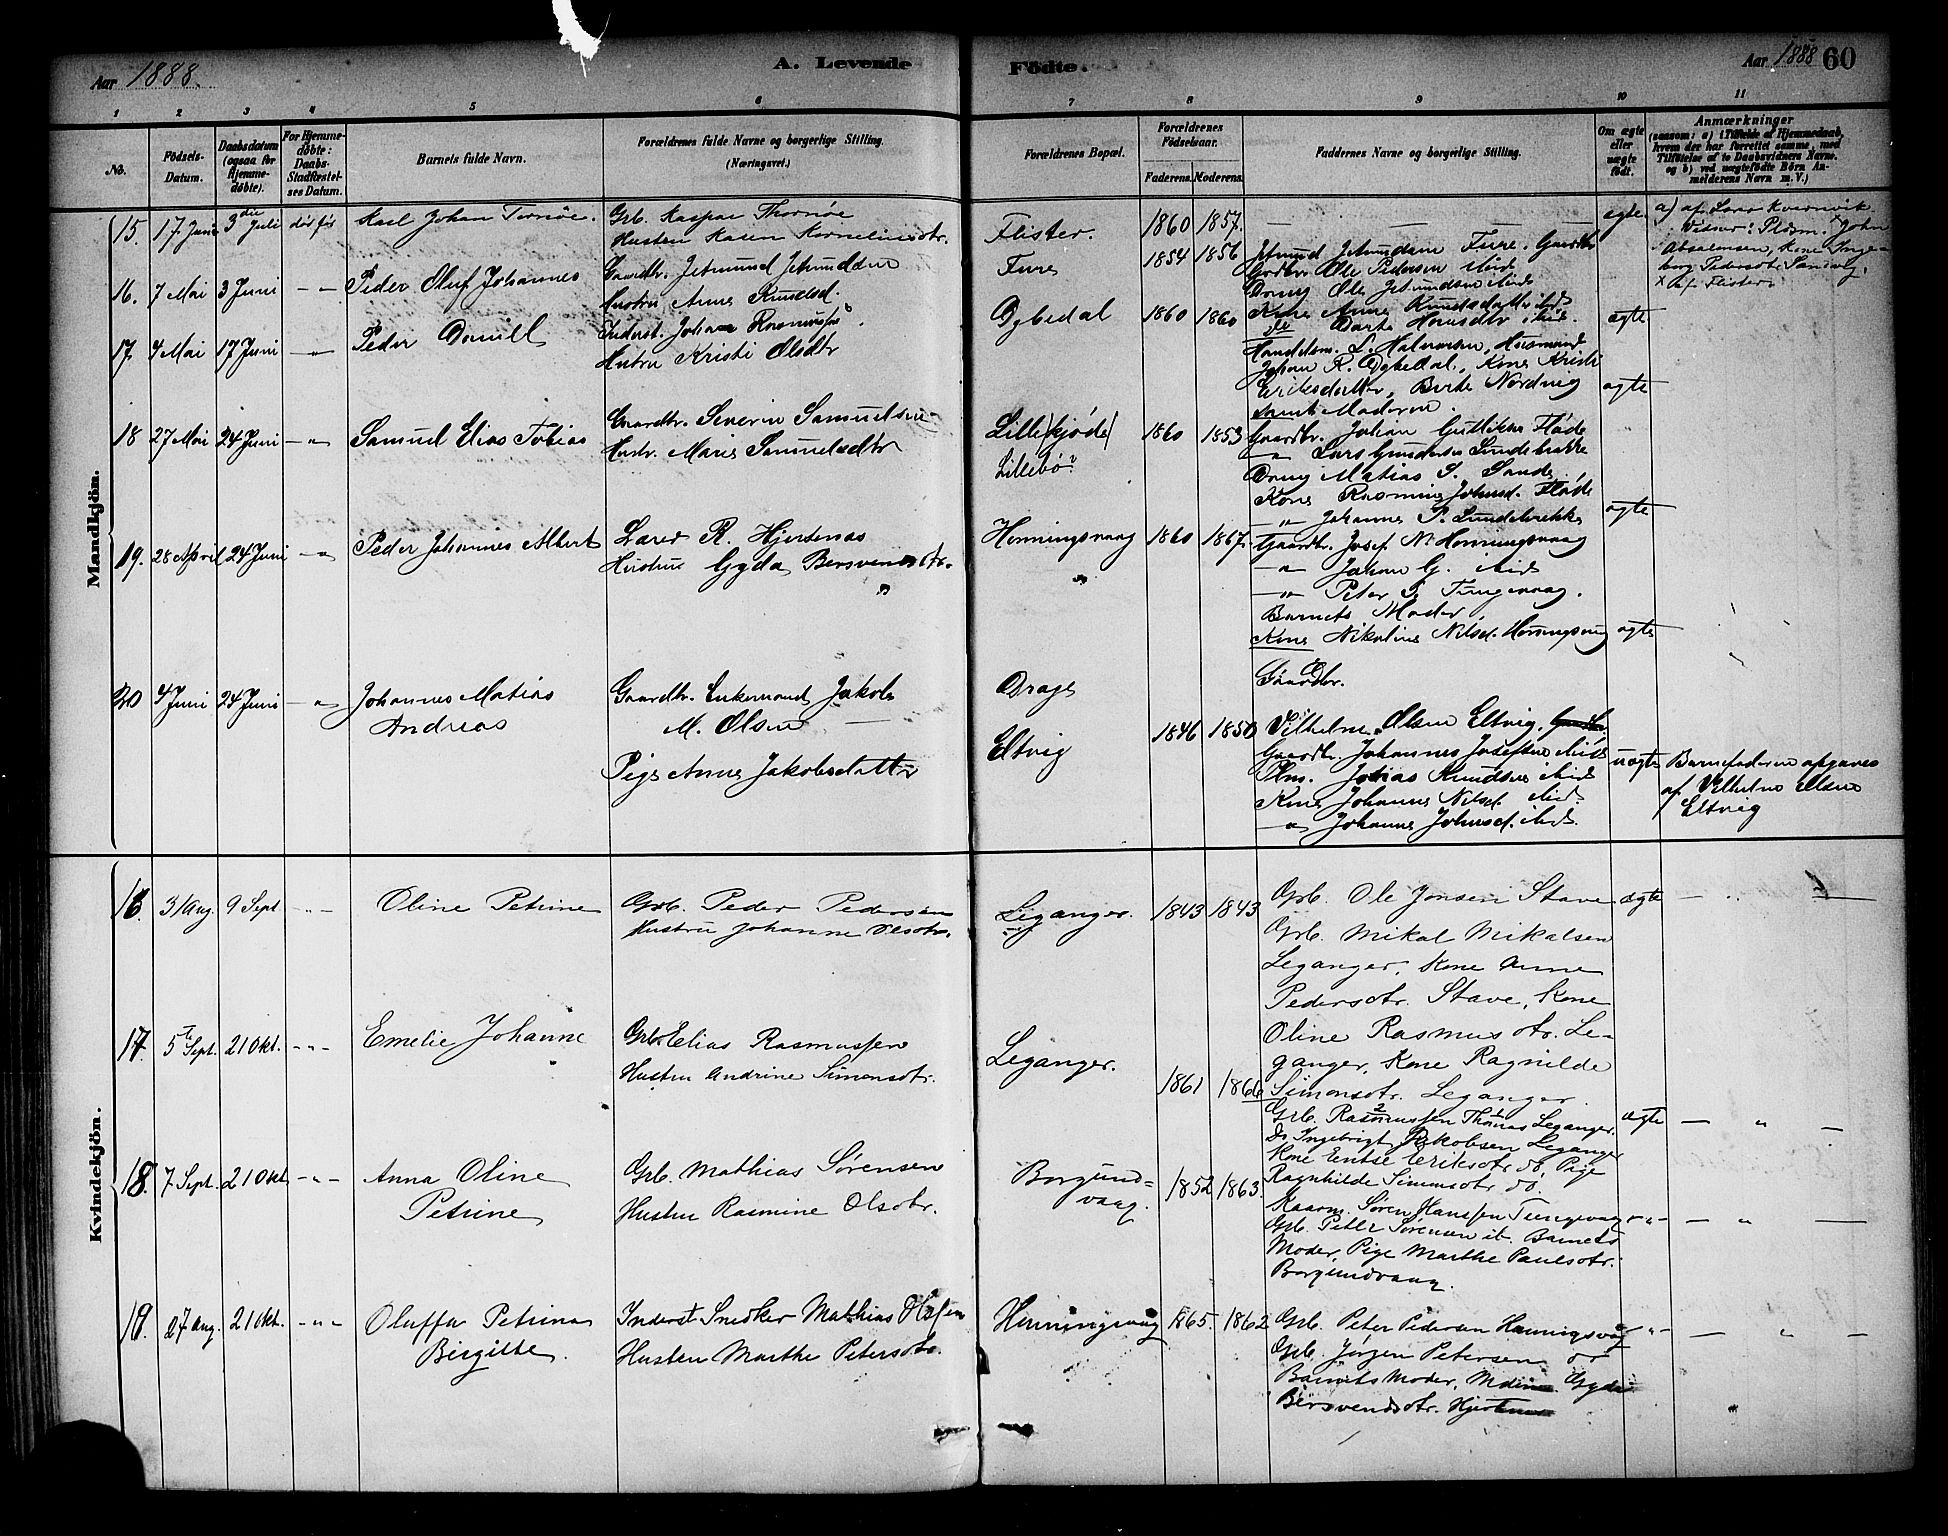 Aar 1888.
A. Levende Födte.
Aar 1888 60
1 2 3 4 5 6 7 8 9 10 11
No.
Födsels-Datum.
Daabsdatum (ogsaa for Hjemme-döbte).
For Hjemme-döbte: Daabs-Stadfæstel-ses Datum.
Barnets fulde Navn.
Forældrenes fulde Navne og borgerlige Stilling. (Næringsvei.)
Forældrenes Bopæl.
Forældrenes Födselsaar.
Faderens. Moderens.
Faddernes Navne og borgerlige Stilling.
Om ægte eller uægte födt.
Anmærkninger
(saasom: a) i Tilfælde af Hjemmedaab, hvem der har forrettet samme, med Tilföielse af to Daabsvidners Navne. og b) ved uægtefödte Börn An-melderens Navn m. V.)
Mandkjön.
15. 17 Juni 3die Juli död før Karl Johan Tornöe.
Grb. Kaspar Thornöe
Hustru Karen Korneliusdtr.
Flister. 1860 1857. — — — ægte
a) af Lars Kvernvik
Vidner: Plsm. John
Absalonsen, Kone Inge-
borg Pedersdtr Sandvig.
x af Flister
16. 7 Mai 3 Juni — Peder Oluf Johannes
Gaardbr. Jetmund Jetmundsen
Hustru Anne Knudsd.
Fure 1854 1856
Jetmund Jetmundsen Fure. Gaardbr
Grdbr. Ole Pedersen ibid
Dreng Ole Jetmundsen ibid
Kone Anne Knudsdatter ibid
do Darte Hansdtr ibid. ægte
17. 4 Mai 17 Juni — Peder Daniel
Inderst. Johan Rasmussen
Hustru Kristi Olsdtr
Dybedal 1860 1860
Handelsm. S. Halvorsen, Husmand
Johan R. Dybedal, Kone Kristi
Eriksdatter, Berte Nordvig
samt Moderen. ægte
18 27 Mai 24 Juni — Samuel Elias Tobias
Gaardbr. Severin Samuelsen
Hustr. Marie Samuelsdtr
Lille(kjöde)
Lillebö? 1860 1853
Gaardbr. Johan Gullikson Fløde
— " — Lars Gundersen Lundebrække
Dreng Matias S. Sande
Kone Rasmine Johnsd. Fløde
— " — Johanne P. Lundebrække ægte
19. 28 April 24 Juni — Peder Johannes Albert
Lærer R. Hjertenæs
Hustru Gyda Bersvendsdtr.
Honningsvaag 1860 1867.
Gaardbr. Josef N. Honningsvaag
— " — Johan G. ibid
— " — Peter S. Tungevaag.
Barnets Moder,
Kone Nikoline Nilsd. Honningsvaag ægte
20 4 Juni 24 Juni — Johannes Matias
Andreas
Gaardbr. Enkemand Jakob
M. Olsen
Pige Anne Jakobsdatter
Drage
Eltvig 1846 1850
Gaardbr.
Vilhelm Olsen Eltvig,
Gaardbr. Johannes Josefsen ibid
Plm. Tobias Knudsen ibid
Kone Johanne Nilsd. ibid.
— " — Johanne Johnsd. ibid. uægte
Barnefaderen opgaves
af Vilhelm Olsen
Eltvig
Kvindekjön.
16. 31 Aug. 9 Sept - " - Oline Petrine
Grb. Peder Pedersen
Hustru Johanne Olsdtr.
Leganger. 1843 1843
Grb. Ole Jonsen Stave ægte
Grb. Mikal Mikalsen
Leganger, Kone Anne
Pedersdtr. Stave, Kone
Oline Rasmusdtr. Le-
ganger, Kone Ragnilde
Simonsdtr. Leganger.
17. 5te Sept. 21 Okt. - " - Emelie Johanne
Grb. Elias Rasmussen
Hustru Andrine Simonsdtr.
Leganger. 1861 1866
Grb. Rasmussen Thomas Leganger. ægte
Do Ingebrigt Jakobsen Leganger
Kone Eriksdtr do, Pige
Ragnhilde Simonsdtr do.
18. 7 Sept. 21 Okt - " - Anna Oline
Petrine
Grb. Mathias Sørensen
Hustru Rasmine Olsdtr.
Borgund=
vaag. 1852 1863.
Kaarm. Søren Hanssen Tungevaag - " -
Grb. Peter Sørensen ib. Barnets
Moder, Pige Marthe Paulsdtr.
Borgundvaag.
19. 27 Aug. 21 Okt. - " - Oluffa Petrina
Birgitte.
Inderst Snedker Mathias Olsen
Hustru Marthe Petersdtr.
Honningsvaag 1865. 1862
Grb. Peter Pedersen Honningsvåg - " -
Grb. Jørgen Petersen do
Barnets Moder, Gyda
Bersvendsdtr.